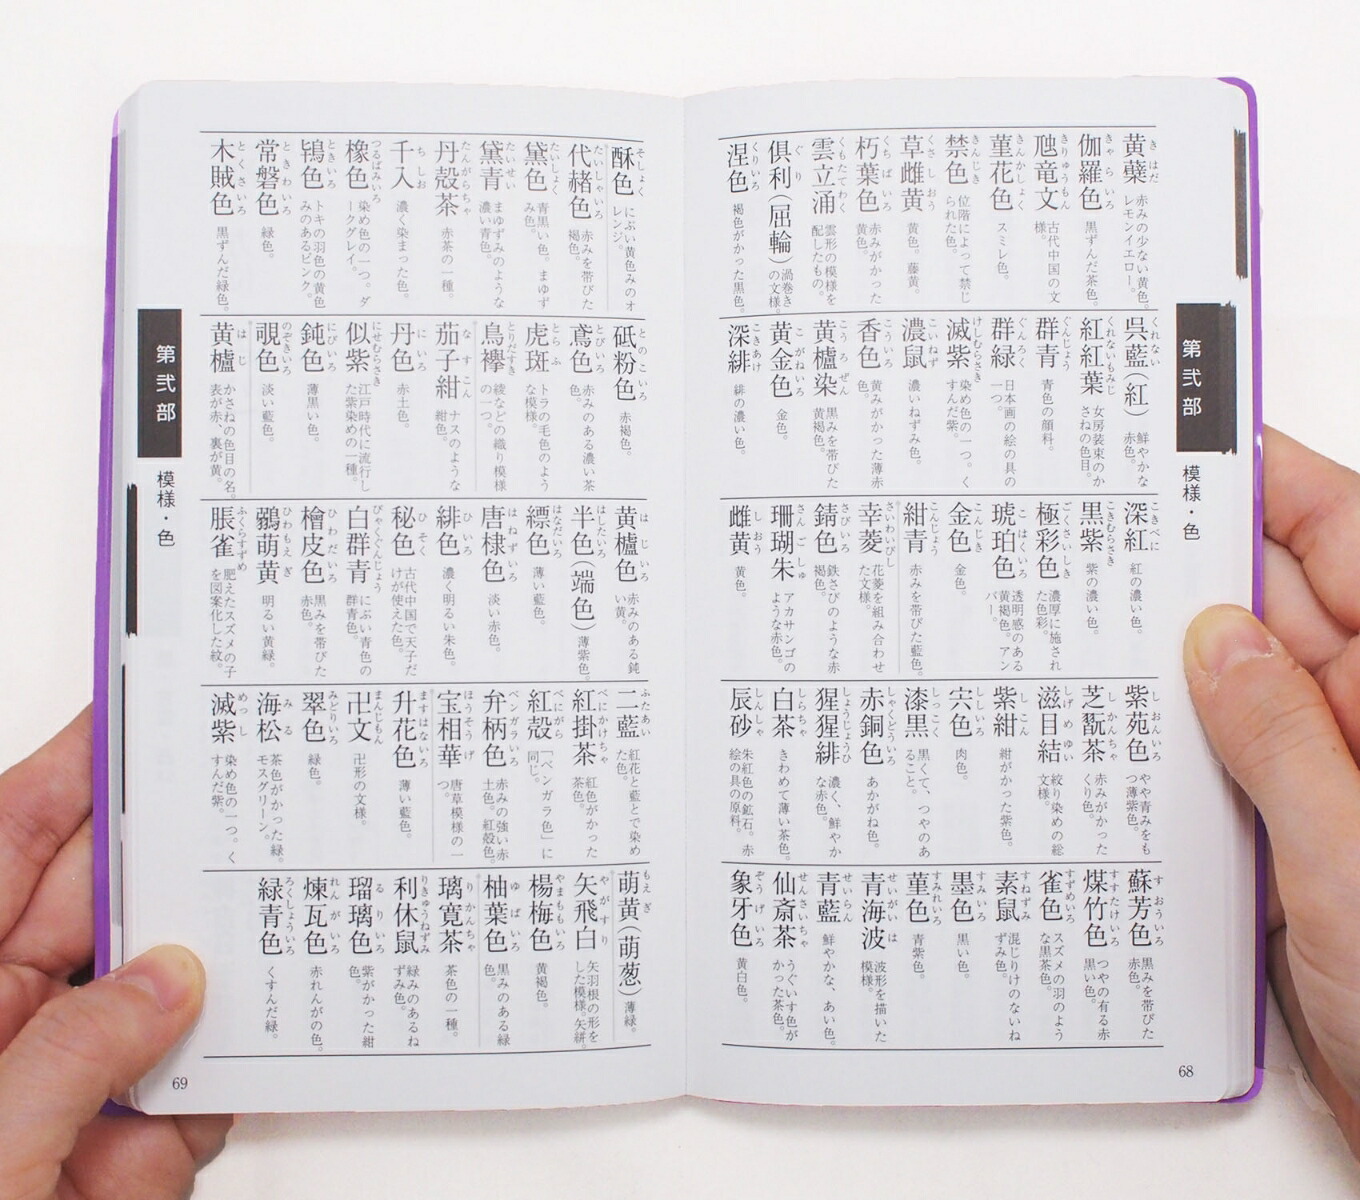 第弐部
模様・色
黄蘗 きはだ 赤みの少ない黄色。レモンイエロー。
伽羅色 きゃらいろ 黒ずんだ茶色。
虺竜文 きりゅうもん 古代中国の文様。
菫花色 きんかしょく スミレ色。
禁色 きんじき 位階によって禁じられた色。
草雌黄 くさしおう 黄色。藤黄。
朽葉色 くちばいろ 赤みがかった黄色。
雲立涌 くもたてわく 雲形の模様を配したもの。
倶利(屈輪) ぐり 渦巻きの文様。
涅色 くりいろ 褐色がかった黒色。
呉藍(紅) くれない 鮮やかな赤色。
紅紅葉 くれないもみじ 女房装束のかさねの色目。
群青 ぐんじょう 青色の顔料。
群緑 ぐんろく 日本画の絵の具の一つ。
滅紫 けしむらさき 染め色の一つ。くすんだ紫。
濃鼠 こいねず 濃いねずみ色。
香色 こういろ 黄みがかった薄赤色。
黄櫨染 こうろぜん 黒みを帯びた黄褐色。
黄金色 こがねいろ 金色。
深緋 こきあけ 緋の濃い色。
深紅 こきべに 紅の濃い色。
黒紫 こきむらさき 紫の濃い色。
極彩色 ごくさいしき 濃厚に施された色彩。
琥珀色 こはくいろ 透明感のある黄褐色。アンバー。
金色 こんじき 金色。
紺青 こんじょう 赤みを帯びた藍色。
幸菱 さいわいびし 花菱を組み合わせた文様。
錆色 さびいろ 鉄さびのような赤褐色。
珊瑚朱 さんごしゅ アカサンゴのような赤色。
雌黄 しおう 黄色。
紫苑色 しおんいろ やや青みをもつ薄紫色。
芝翫茶 しかんちゃ 赤みがかったくり色。
滋目結 しげめゆい 絞り染めの総文様。
紫紺 しこん 紺がかった紫色。
宍色 ししいろ 肉色。
漆黒 しっこく 黒くて、つやのあること。
赤銅色 しゃくどういろ あかがね色。
猩猩緋 しょうじょうひ 濃く、鮮やかな赤色。
白茶 しらちゃ きわめて薄い茶色。
辰砂 しんしゃ 朱紅色の鉱石。赤絵の具の原料。
蘇芳色 すおういろ 黒みを帯びた赤色。
煤竹色 すすたけいろ つやの有る赤黒い色。
雀色 すずめいろ スズメの羽のような黒茶色。
素鼠 すねずみ 混じりけのないねずみ色。
墨色 すみいろ 黒い色。
菫色 すみれいろ 青紫色。
青海波 せいがいは 波形を描いた模様。
青藍 せいらん 鮮やかな、あい色。
仙斎茶 せんさいちゃ うぐいす色がかった茶色。
象牙色 ぞうげいろ 黄白色。
68
酥色 そしょく にぶい黄色みのオレンジ。
代赭色 たいしゃいろ 赤みを帯びた褐色。
黛色 たいしょく 青黒い色。まゆずみ色。
黛青 たいせい まゆずみのような濃い青色。
丹殻茶 たんがらちゃ 赤茶の一種。
千入 ちしお 濃く染まった色。
橡色 つるばみいろ 染め色の一つ。ダークグレイ。
鴇色 ときいろ トキの羽色の黄色みのあるピンク。
常磐色 ときわいろ 緑色。
木賊色 とくさいろ 黒ずんだ緑色。
砥粉色 とのこいろ 赤褐色。
鳶色 とびいろ 赤みのある濃い茶色。
虎斑 とらふ トラの毛色のような模様。
鳥襷 とりだすき 綾などの織り模様の一つ。
茄子紺 なすこん ナスのような紺色。
丹色 にいろ 赤土色。
似紫 にせむらさき 江戸時代に流行した紫染めの一種。
鈍色 にびいろ 薄黒い色。
覗色 のぞきいろ 淡い藍色。
黄櫨 はじ かさねの色目の名。表が赤、裏が黄。
黄櫨色 はじいろ 赤みのある鈍い黄。
半色(端色) はしたいろ 薄紫色。
縹色 はなだいろ 薄い藍色。
唐棣色 はねずいろ 淡い赤色。
緋色 ひいろ 濃く明るい朱色。
秘色 ひそく 古代中国で天子だけが使えた色。
白群青 びゃくぐんじょう にぶい青色の群青色。
檜皮色 ひわだいろ 黒みを帯びた赤色。
鶸萌黄 ひわもえぎ 明るい黄緑。
脹雀 ふくらすずめ 肥えたスズメの子を図案化した紋。
二藍 ふたあい 紅花と藍とで染めた色。
紅掛茶 べにかけちゃ 紅色がかった茶色。
紅殻 べにがら 「ベンガラ色」に同じ。
弁柄色 ベンガラいろ 赤みの強い赤土色。紅殻色。
宝相華 ほうそうげ 唐草模様の一つ。
升花色 ますはないろ 薄い藍色。
卍文 まんじもん 卍形の文様。
翠色 みどりいろ 緑色。
海松 みる 茶色がかった緑。モスグリーン。
滅紫 めっし 染め色の一つ。くすんだ紫。
萌黄(萌葱) もえぎ 薄緑。
矢飛白 やがすり 矢羽根の形をした模様。矢絣。
楊梅色 やまももいろ 黄褐色。
柚葉色 ゆばいろ 黒みのある緑色。
璃寛茶 りかんちゃ 茶色の一種。
利休鼠 りきゅうねずみ 緑みのあるねずみ色。
瑠璃色 るりいろ 紫がかった紺色。
煉瓦色 れんがいろ 赤れんがの色。
緑青色 ろくしょういろ くすんだ緑。
第弐部
模様・色
69